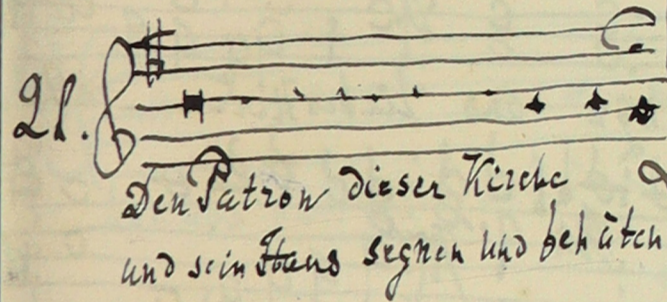 21.
Den Patron dieser Kirche
und sein Haus segnen und behüten